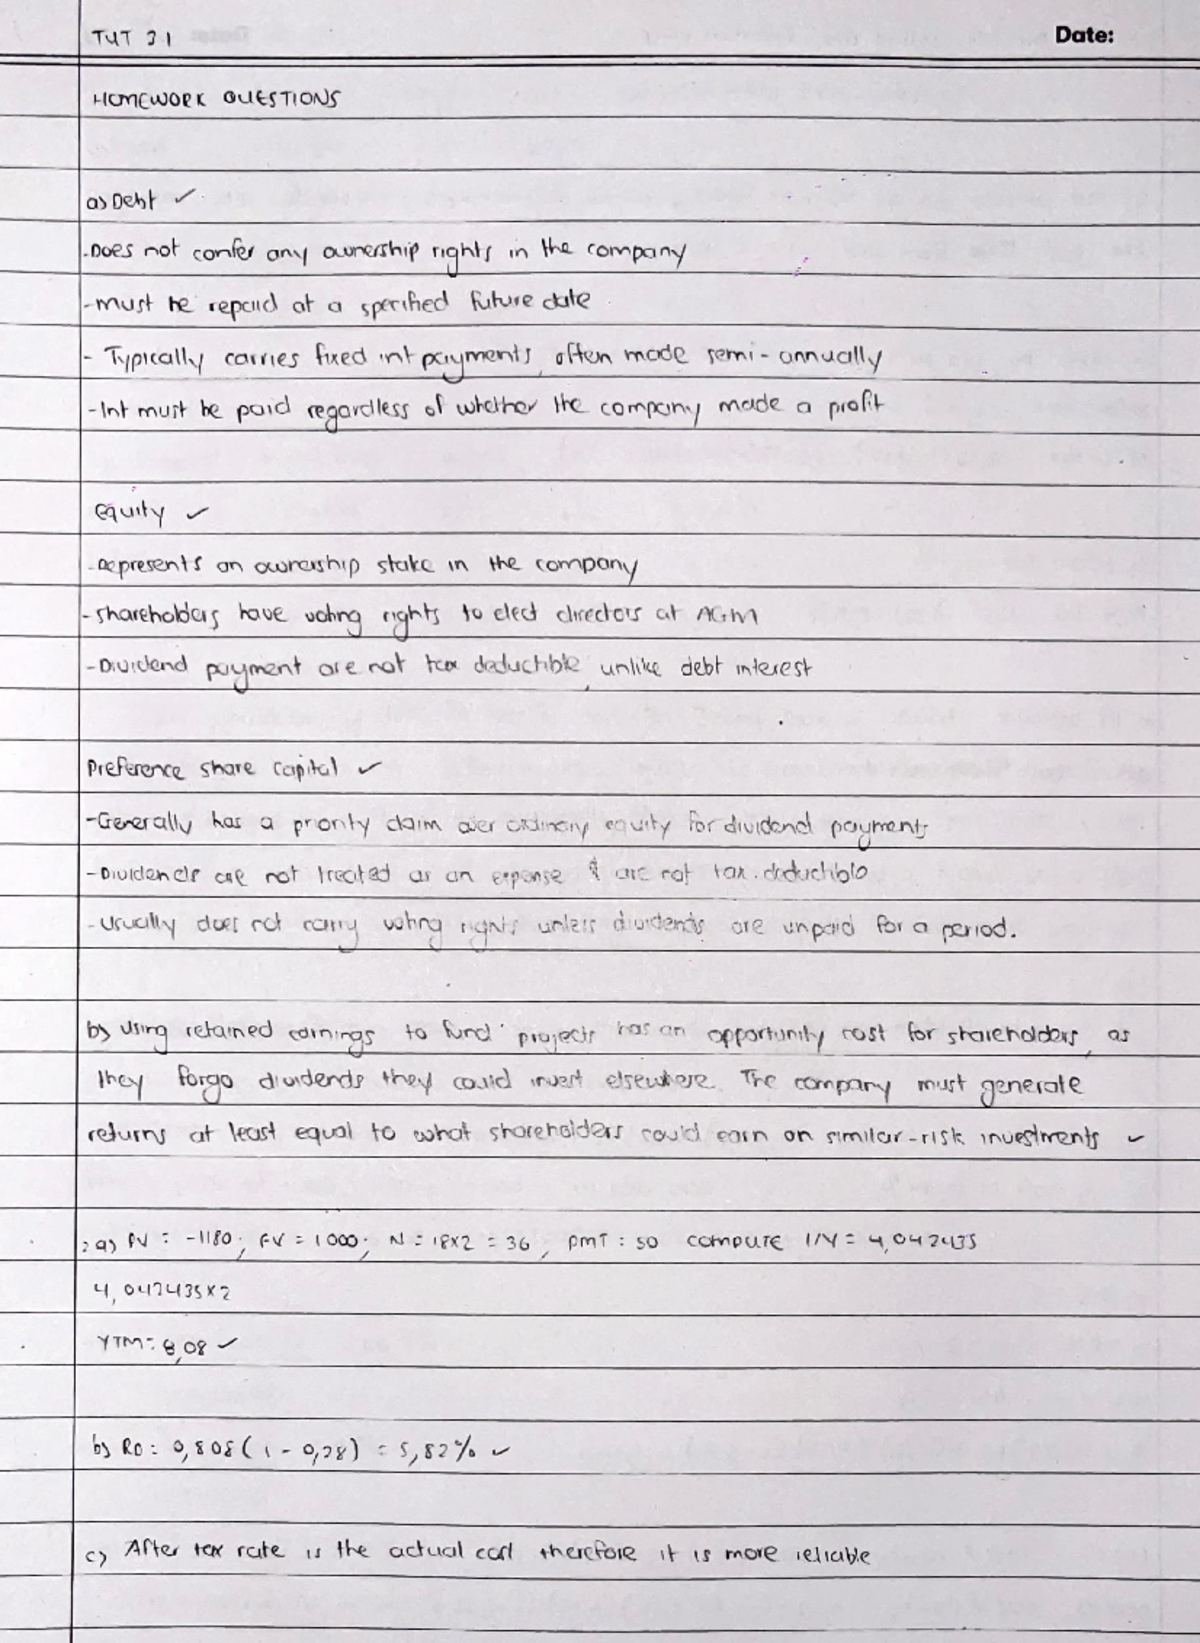 TUT 31
Date:
HOMEWORK QUESTIONS
a) Debt ✓
- Does not confer any ownership rights in the company
- must be repaid at a specified future date
- Typically carries fixed int payments, often made semi-annually
- Int must be paid regardless of whether the company made a profit
Equity ✓
- Represents an ownership stake in the company
- shareholders have voting rights to elect directors at AGM
- Dividend payment are not tax deductible, unlike debt interest
Preference share capital ✓
- Generally has a priority claim over ordinary equity for dividend payments
- Dividends are not treated as an expense & are not tax deductible
- Usually does not carry voting rights unless dividends are unpaid for a period.
b) Using retained earnings to fund projects has an opportunity cost for shareholders, as
they forgo dividends they could invest elsewhere. The company must generate
returns at least equal to what shareholders could earn on similar-risk investments ✓
2a) PV = -1180; FV = 1000; N = 18x2 = 36, PMT = 50 COMPUTE I/Y = 4,042435
4,042435x2
YTM = 8,08 ✓
b) RD = 0,808(1 - 0,28) = 5,82% ✓
c) After tax rate is the actual cost therefore it is more reliable